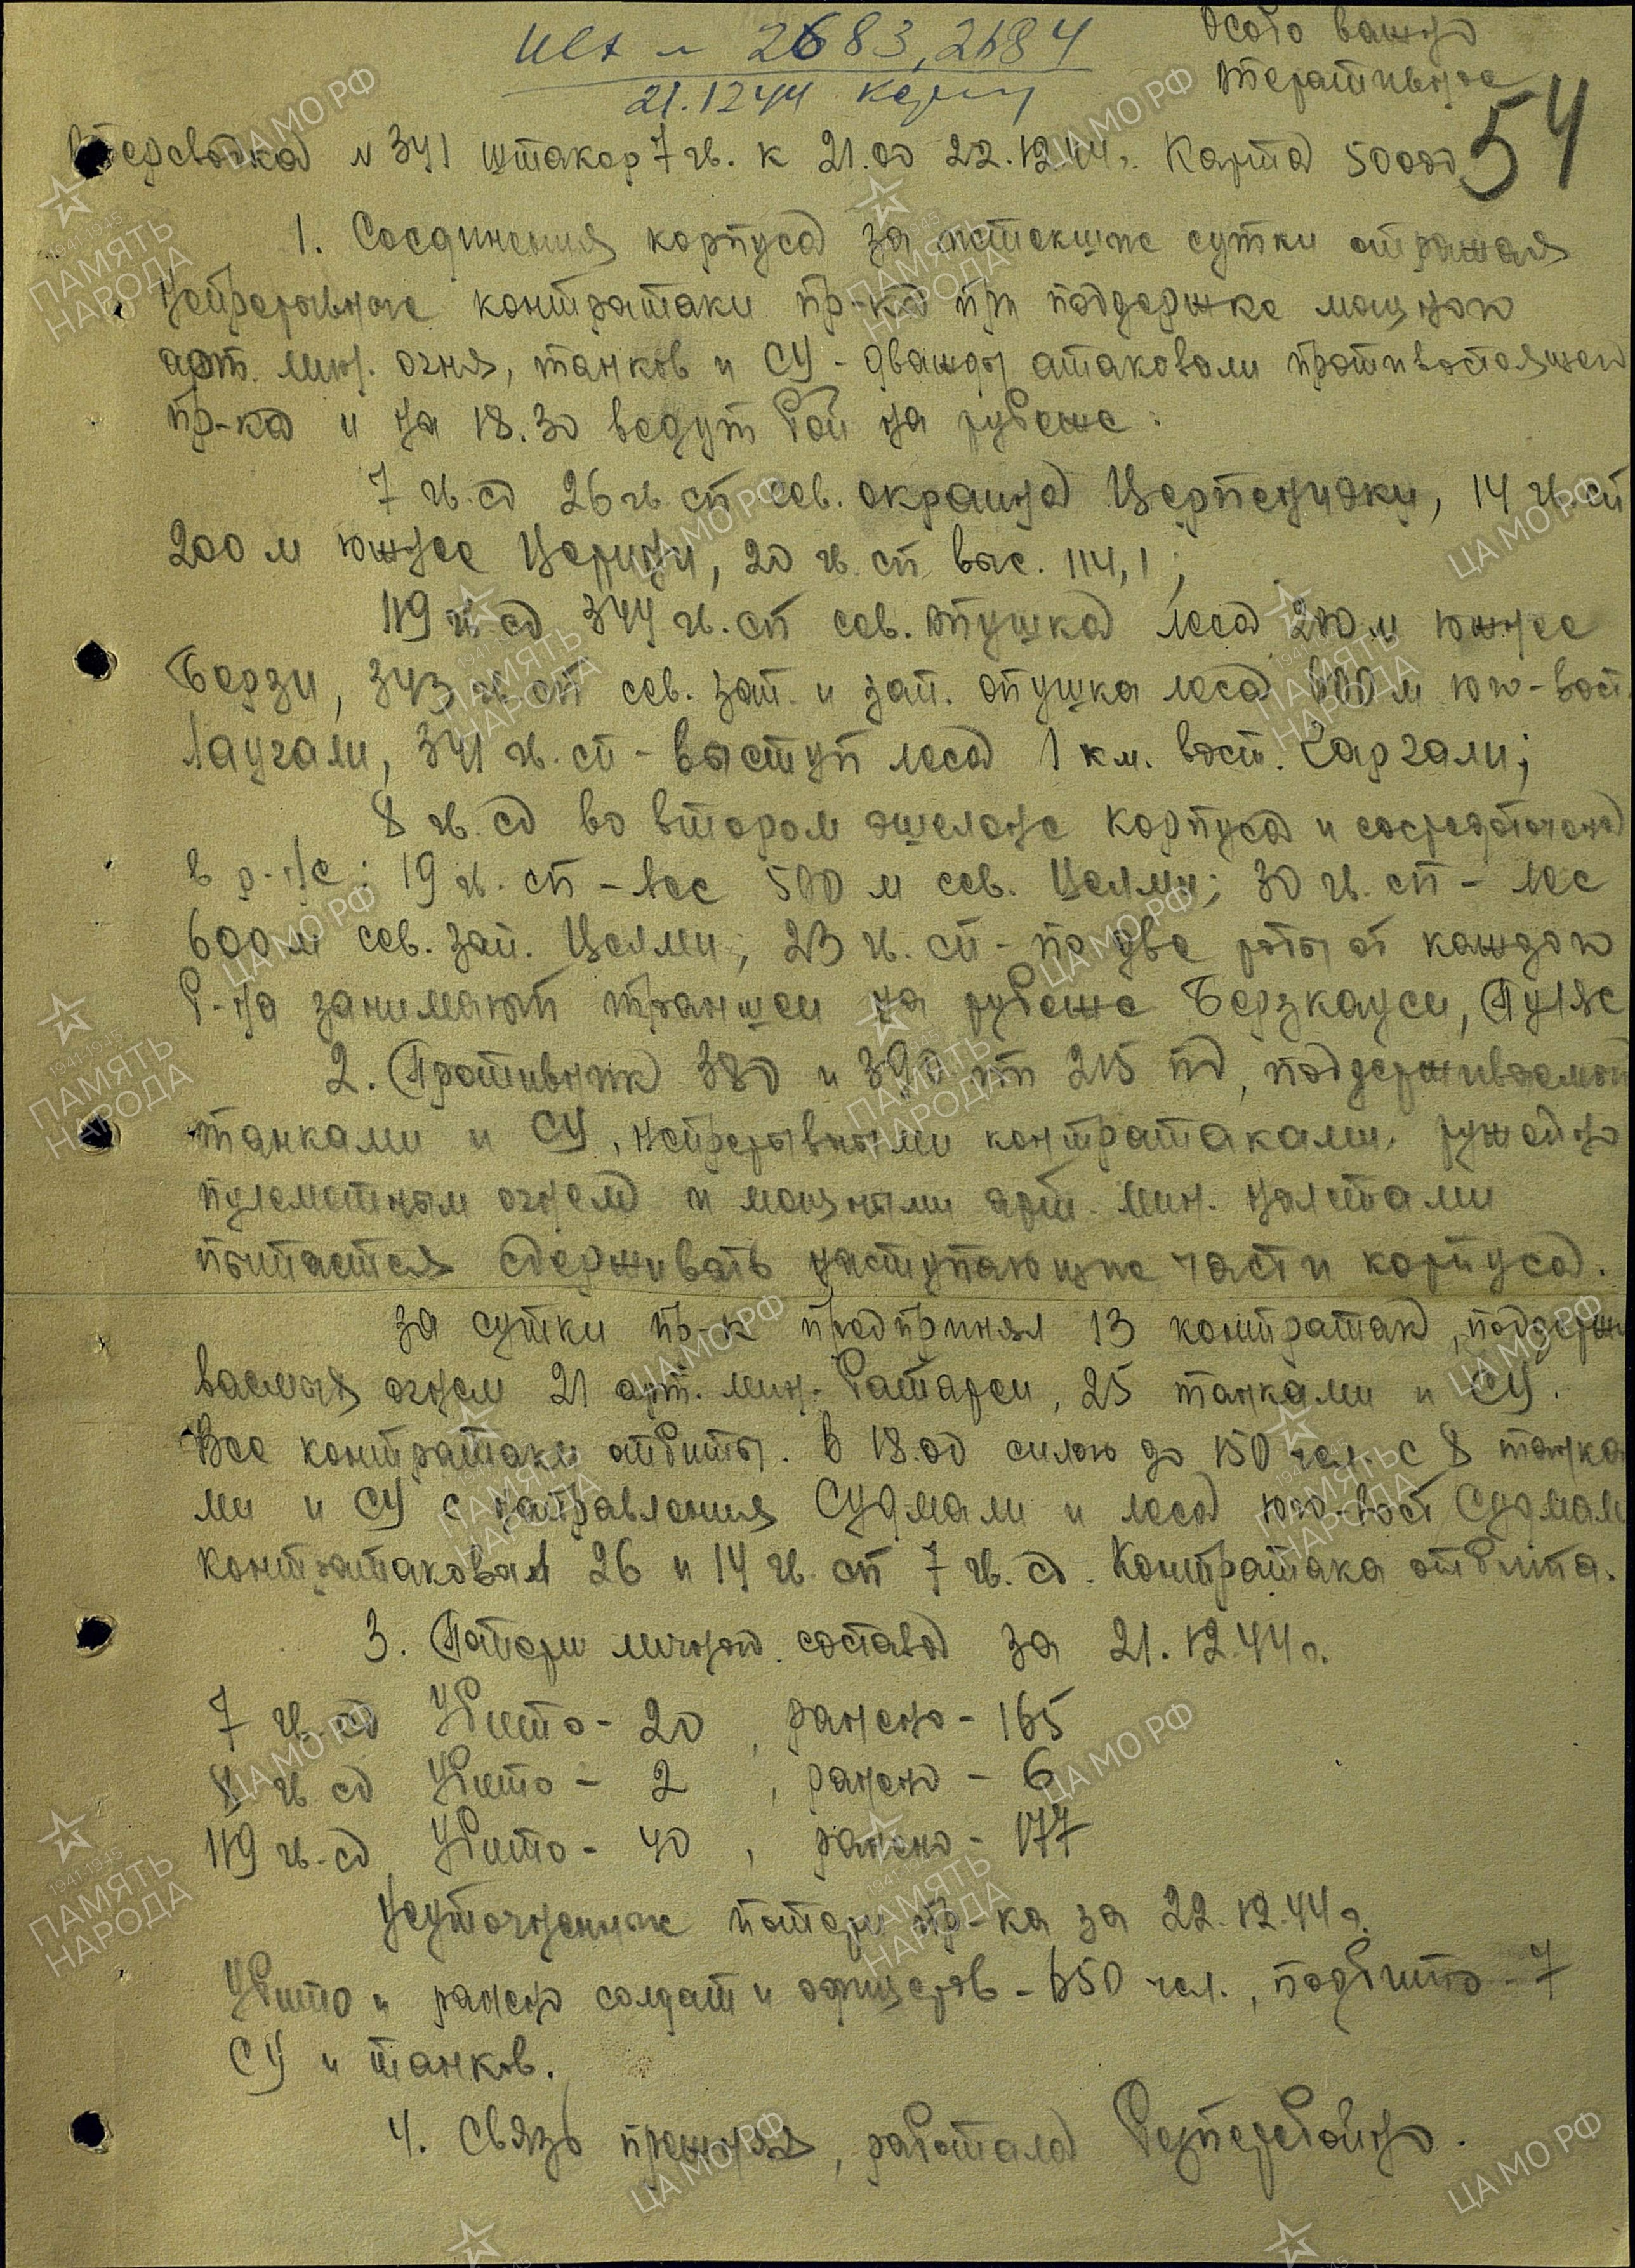 Исх № 2683, 2684
21.12.44
Особо важно
Оперативное
54
Оперсводка № 341 штакор 7 гв. к 21.00 22.12.44г. Карта 50000
1. Соединения корпуса за истекшие сутки отражая
непрерывные контратаки пр-ка при поддержке мощного
арт. мин. огня, танков и СУ - дважды атаковали противостоящего
пр-ка и на 18.30 ведут бой на рубеже:
7 гв. сд 26 гв. сп сев. окраина Церпенияки, 14 гв. сп
200 м южнее Церини, 20 гв. сп выс. 114,1;
119 гв. сд 344 гв. сп сев. опушка леса 200 м южнее
Берзи, 343 гв. сп сев. зап. и зап. опушка леса 600 м юго-вост.
Лаугали, 341 гв. сп - выступ леса 1 км. вост. Чаргали;
8 гв. сд во втором эшелоне корпуса и сосредоточена
в р-не: 19 гв. сп - лес 500 м сев. Целми; 30 гв. сп - лес
600 м сев. зап. Целми; 23 гв. сп - по две роты от каждого
б-на занимают траншеи на рубеже Берзкауси, Пуляс
2. Противник 380 и 390 пп 215 пд, поддерживаемой
танками и СУ, непрерывными контратаками, ружейно
пулеметным огнем и мощными арт. мин. налетами
пытается сдерживать наступающие части корпуса.
За сутки пр-к предпринял 13 контратак, поддержи
ваемых огнем 21 арт. мин. батареи, 25 танками и СУ.
Все контратаки отбиты. В 18.00 силою до 150 чел. с 8 танка
ми и СУ с направления Судмали и леса юго-вост Судмали
контратаковал 26 и 14 гв. сп 7 гв. сд. Контратака отбита.
3. Потери личного состава за 21.12.44г.
7 гв. сд Убито - 20, ранено - 165
8 гв. сд Убито - 2, ранено - 6
119 гв. сд Убито - 40, ранено - 177
Неуточненные потери пр-ка за 22.12.44г.
Убито и ранено солдат и офицеров - 650 чел., подбито - 7
СУ и танков.
4. Связь прежняя, работала бесперебойно.